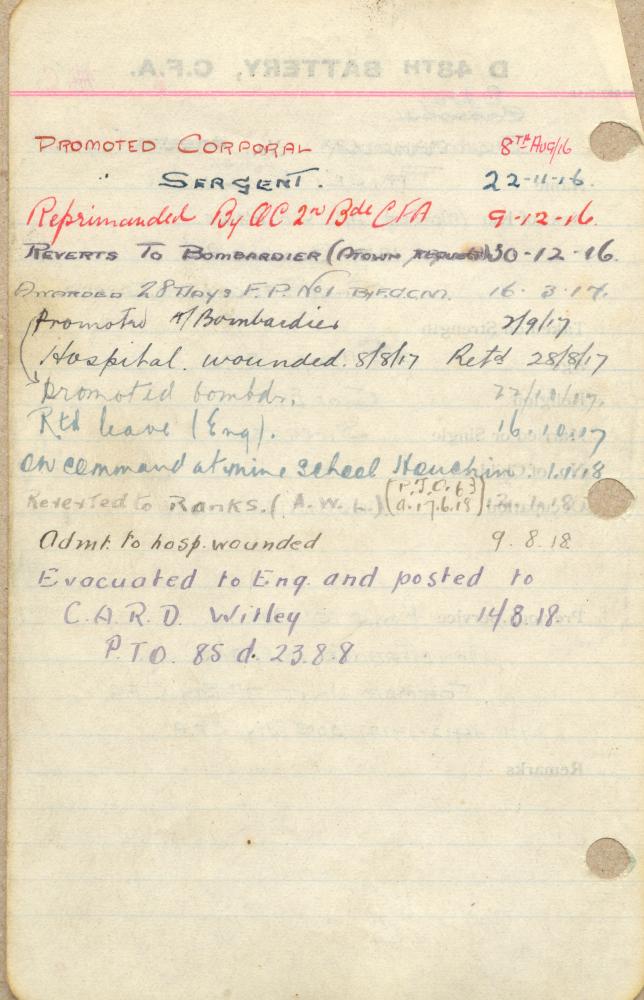 PROMOTED CORPORAL 8TH Aug/16
" SERGENT. 22-11-16.
Reprimanded By OC 2nd Bde CFA 9-12-16.
REVERTS TO BOMBARDIER (AT OWN REQUEST) 30-12-16.
AWARDED 28 DAYS F.P. No1 BY F.G.C.M. 16.3.17.
Promoted A/Bombardier 2/9/17
Hospital. wounded. 8/8/17 Retd 28/8/17
promoted bombdr.
Rtd leave (Eng). 16.10.17
On command at mine School Houchin. 1.1.18
Reverted to RANKS. (A.W.L.) (P.T.O. 63
d. 17.6.18)
Admt. to hosp. wounded 9.8.18
Evacuated to Eng. and posted to
C.A.R.D. Witley 14/8.18.
P.T.O. 85 d. 23.8.8
D 48TH BATTERY, C.F.A.
Remarks